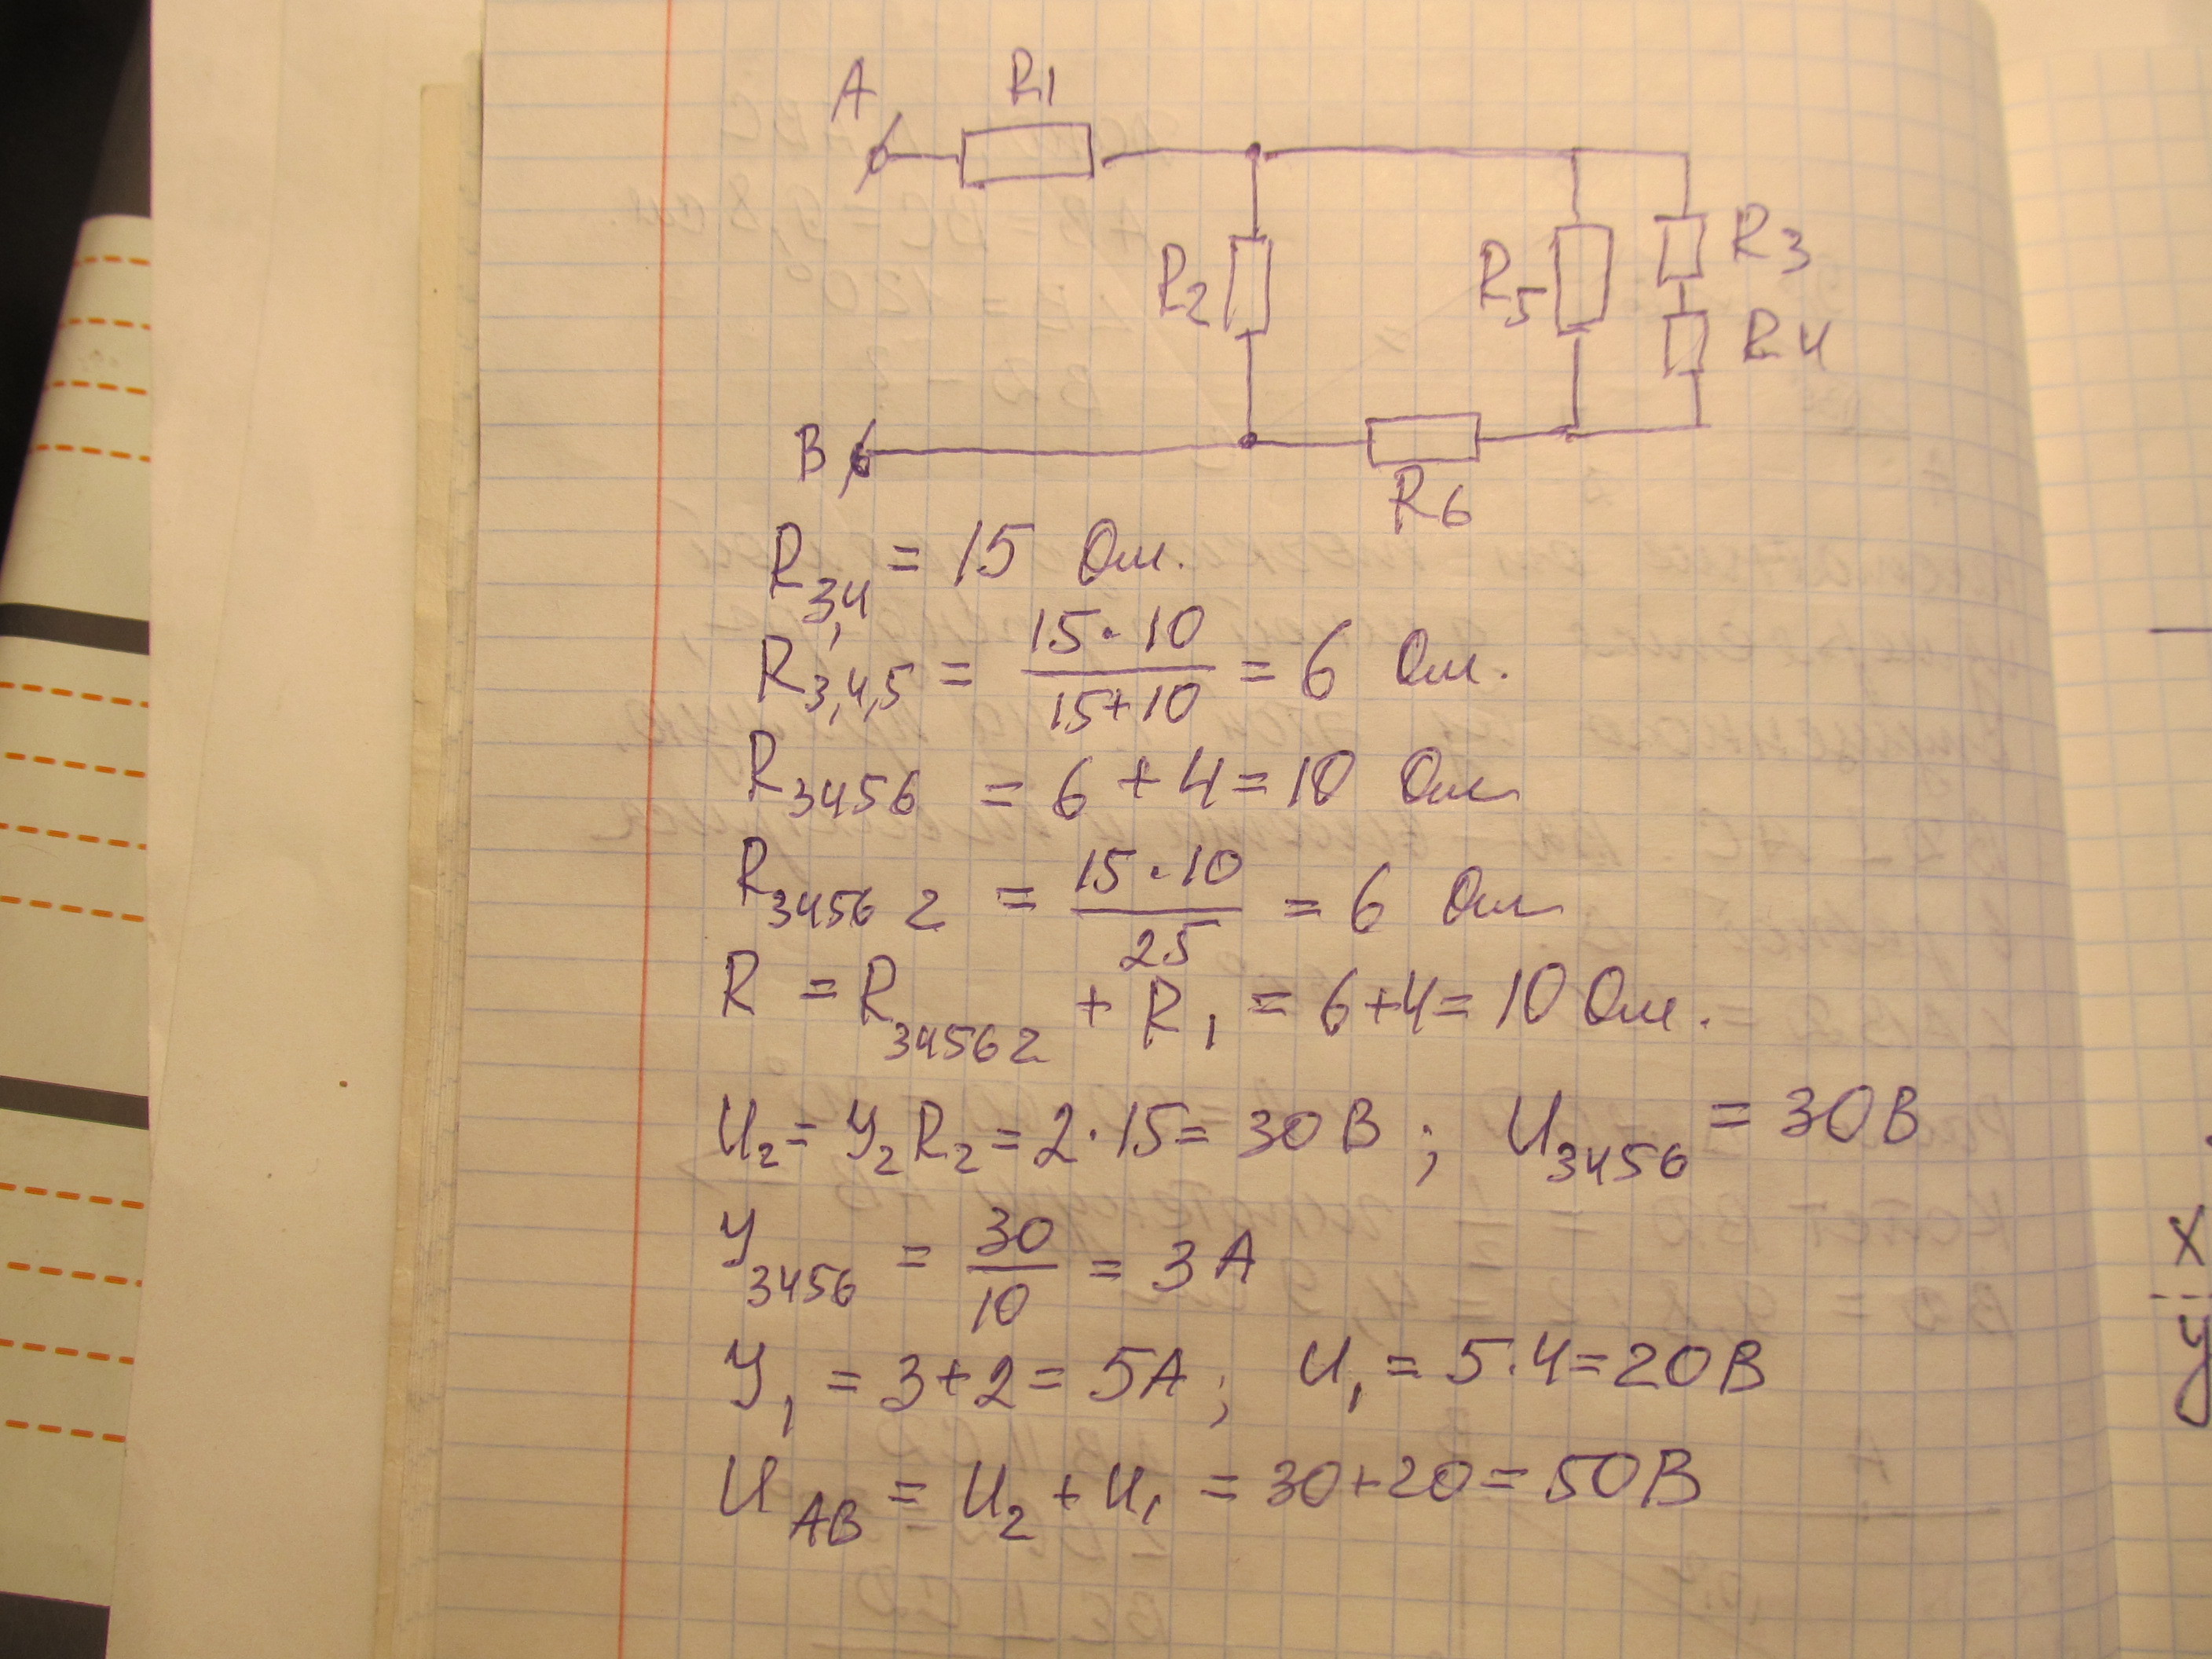 A R1
R2 R5 R3
R4
B
R6
R3,4 = 15 Ом.
R3,4,5 = 15·10 / 15+10 = 6 Ом.
R3456 = 6 + 4 = 10 Ом
R3456 2 = 15·10 / 25 = 6 Ом
R = R3456 2 + R1 = 6+4 = 10 Ом.
U2 = У2 R2 = 2·15 = 30 В ; U3456 = 30 В
У3456 = 30 / 10 = 3 А
У1 = 3+2 = 5А ; U1 = 5·4 = 20 В
UАВ = U2 + U1 = 30+20 = 50 В
x
y